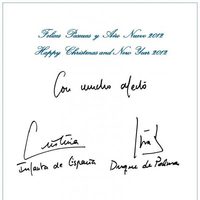 Felices Pascuas y Año Nuevo 2012
Happy Christmas and New Year 2012
Con mucho afecto
Cristina
Infanta de España
Iñaki
Duque de Palma